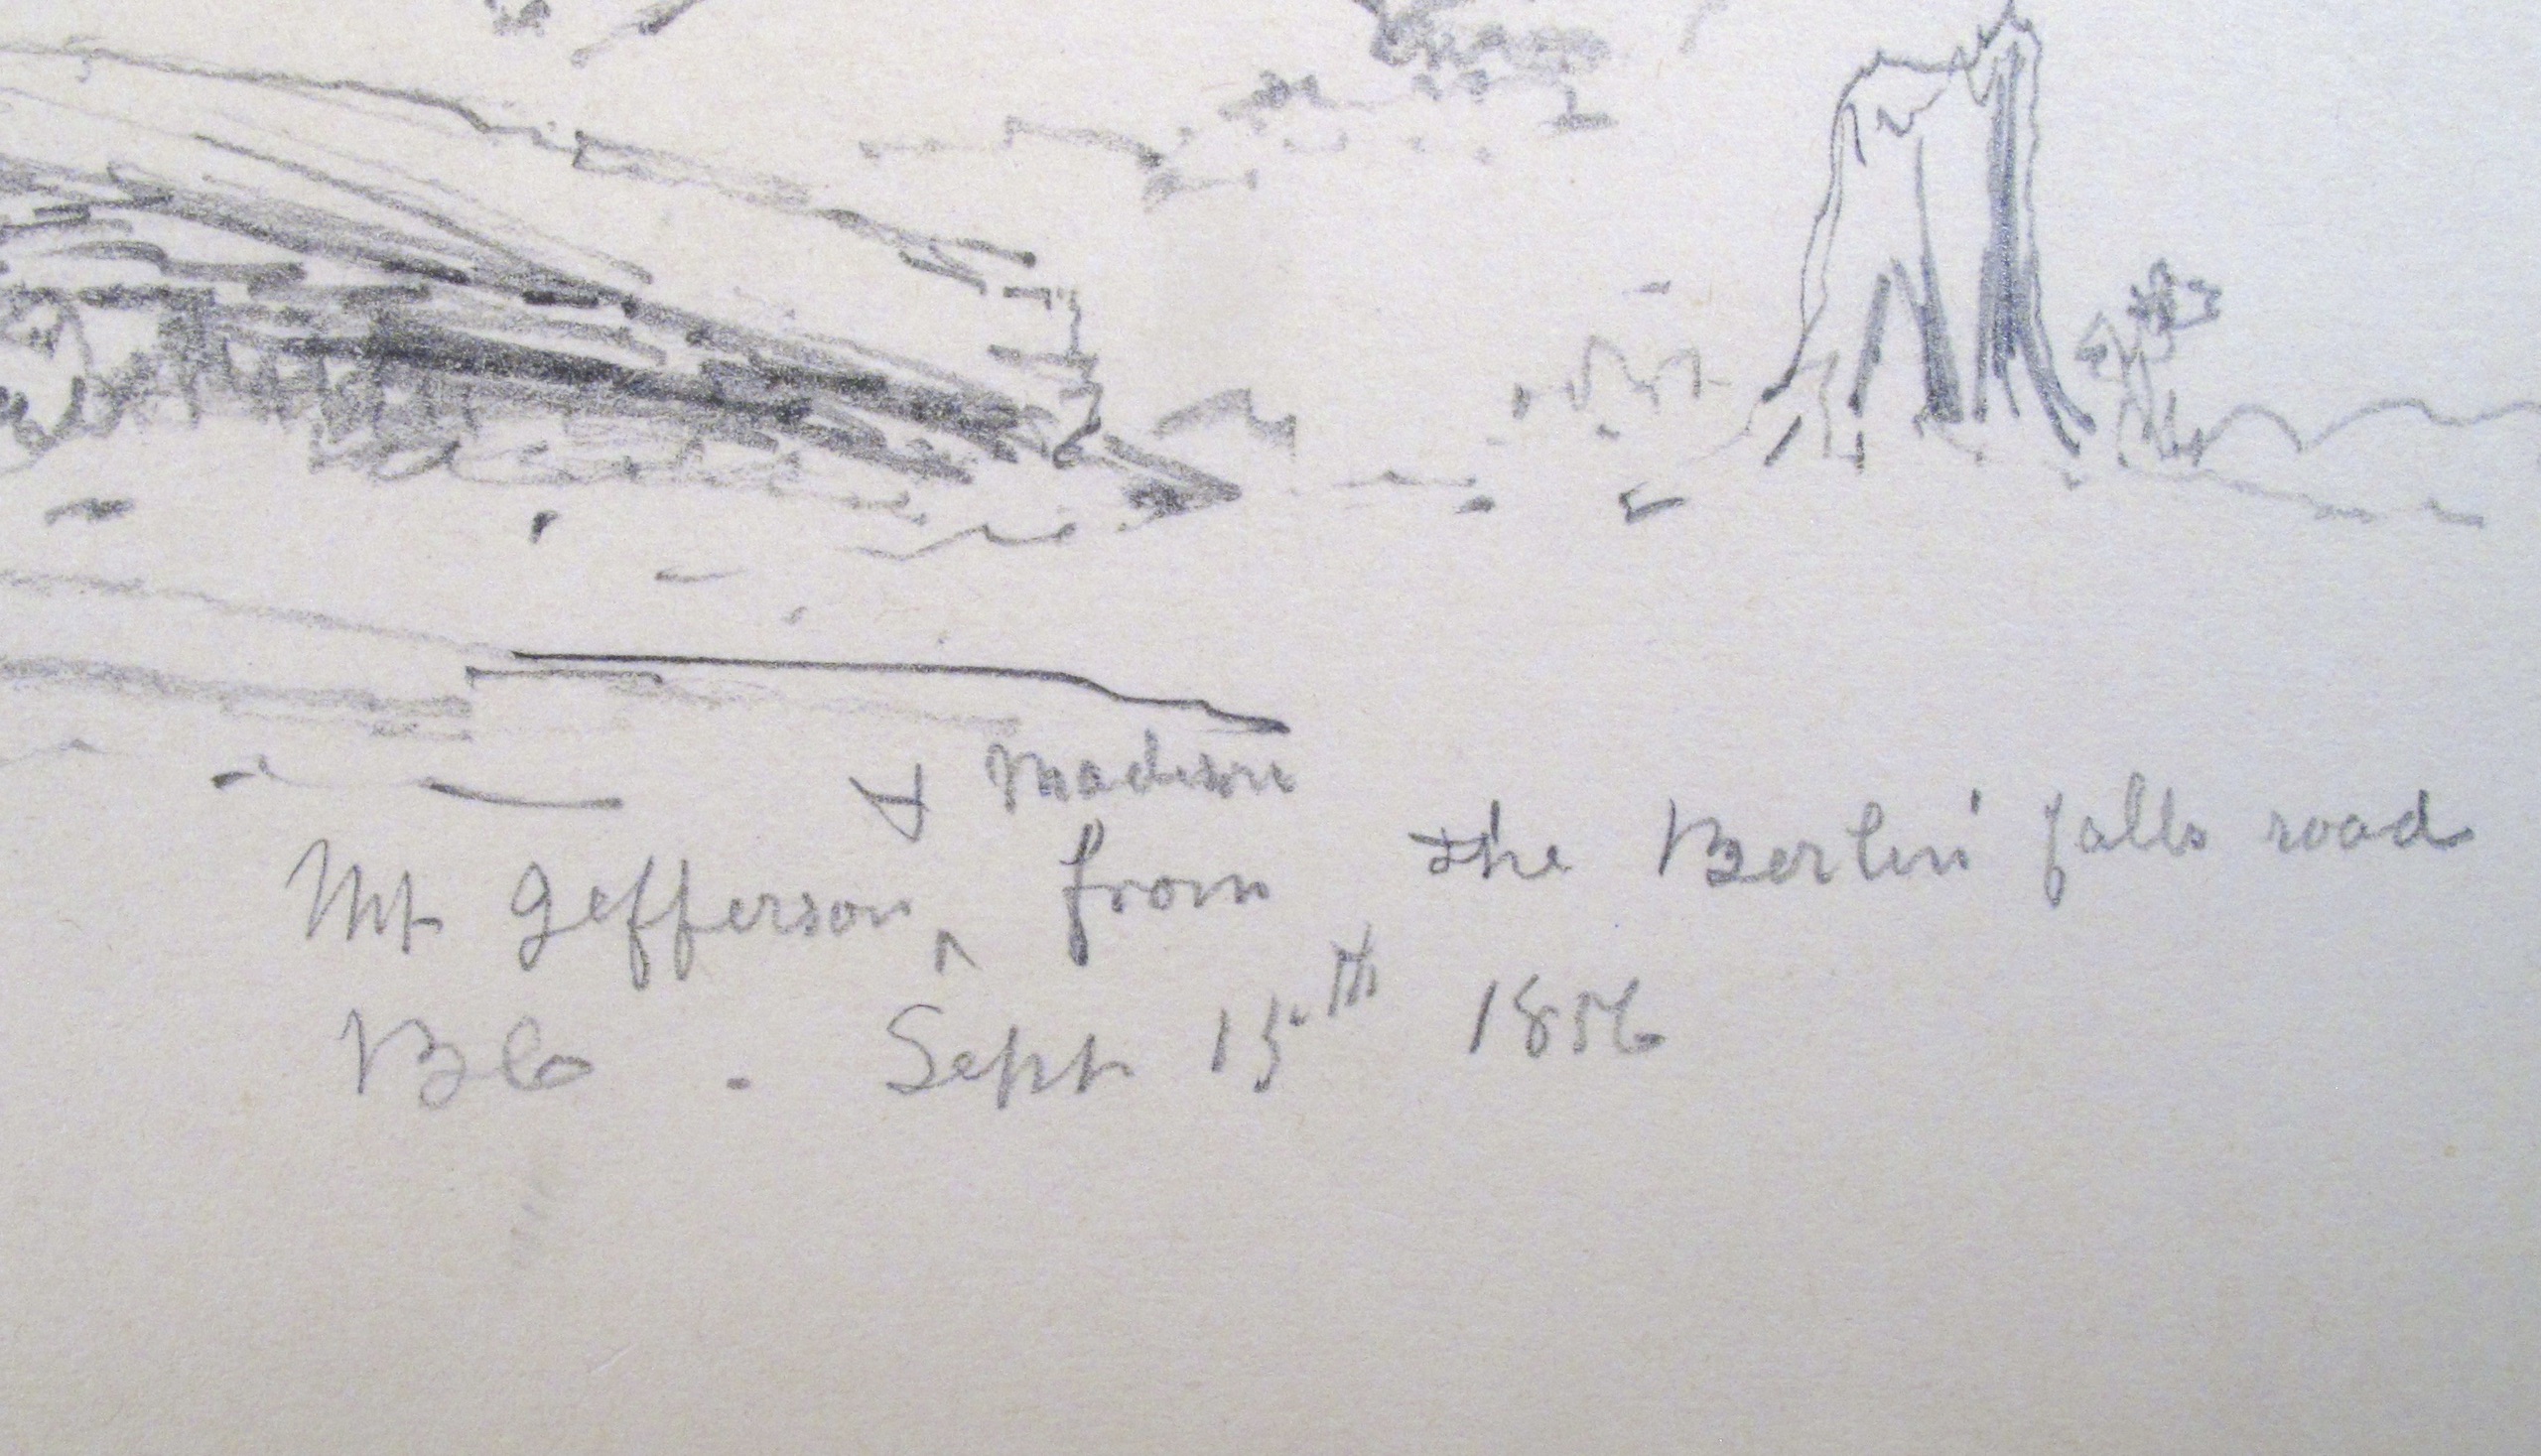 & Madison
Mt Jefferson ^ from the Berlin falls road
Sept 15th 1856